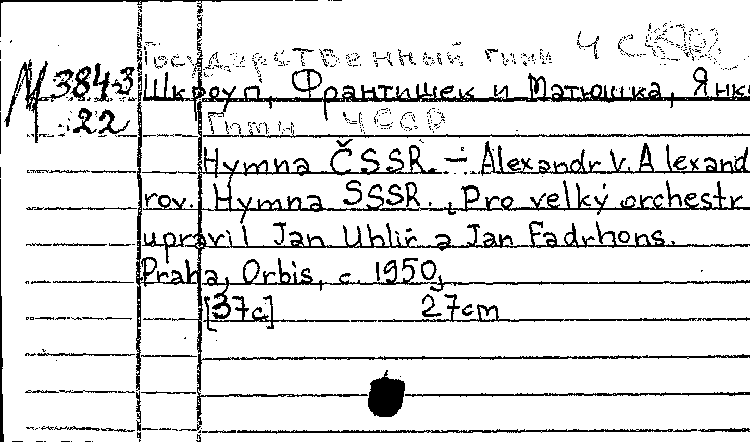 Государственный гимн ЧС
М 3843
22
Шкроуп, Франтишек и Матюшка, Янко
Гимн ЧССР
Hymna ČSSR. – Alexandr V. Alexand
rov. Hymna SSSR. Pro velký orchestr
upravil Jan Uhlíř a Jan Fadrhons.
Praha, Orbis, c. 1950,
[37c] 27cm